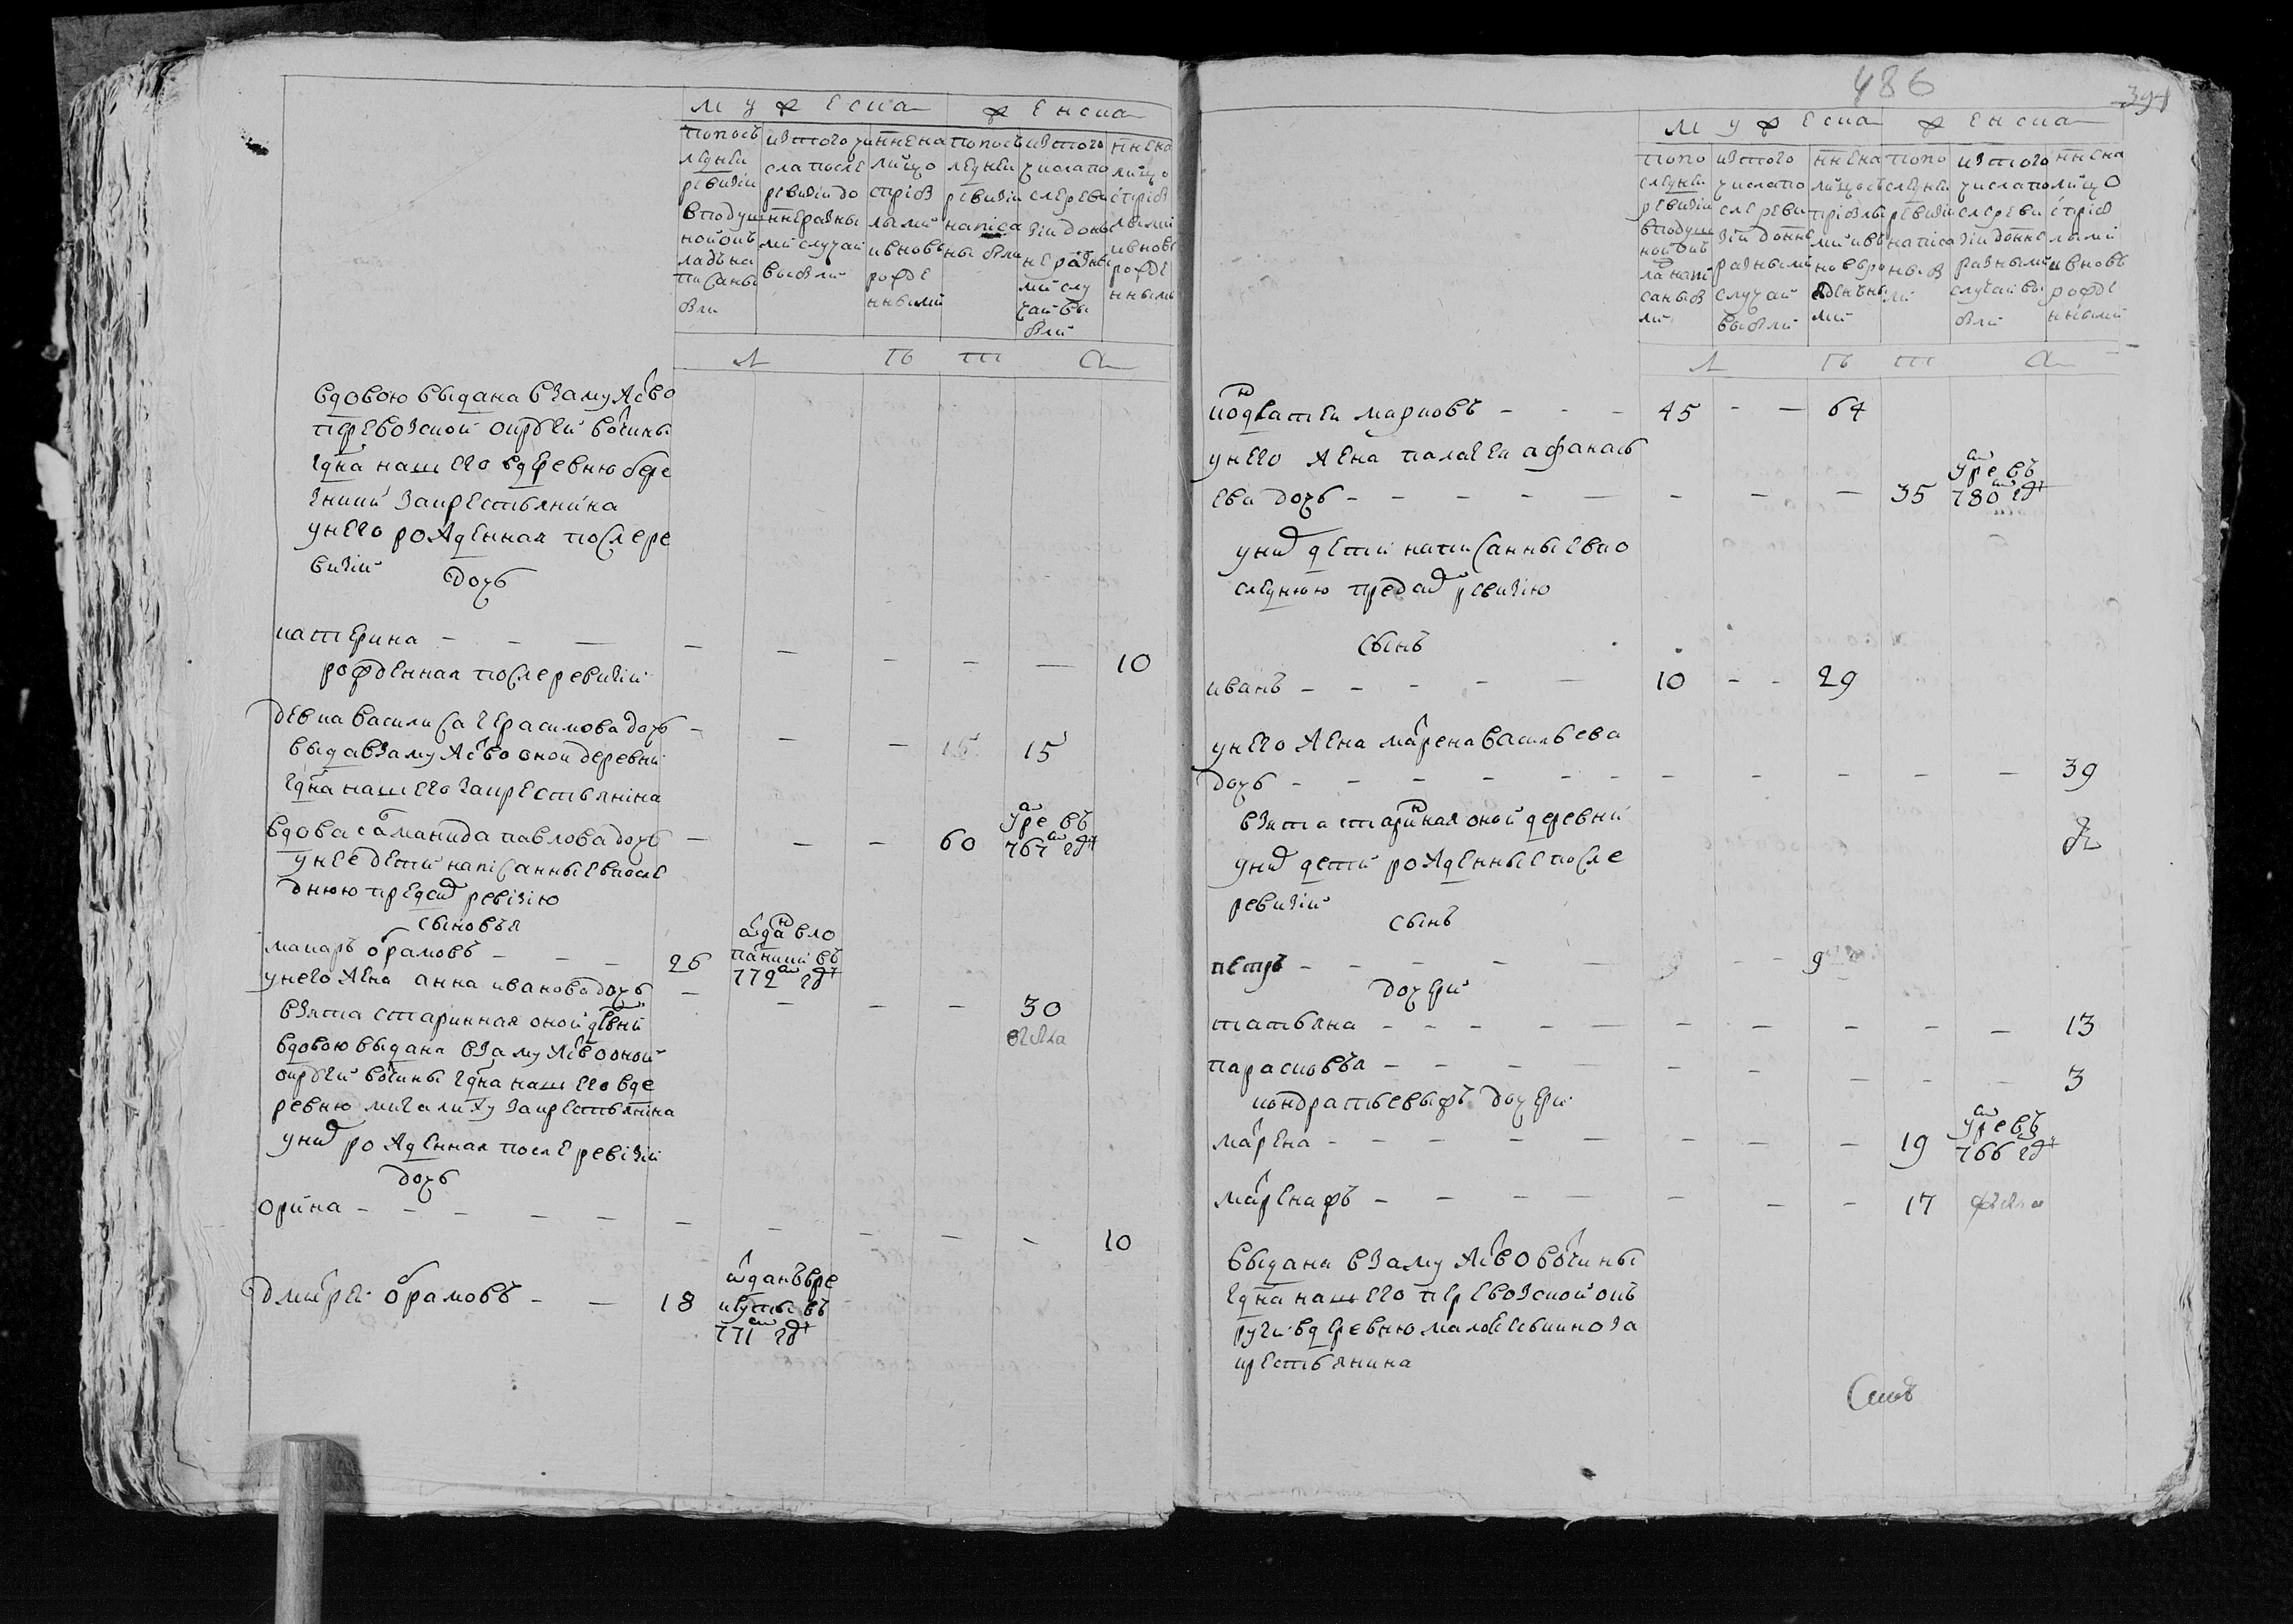 мужеска женска
по последней ревизии в подушной окладъ написаны были
из того числа после ревизии до ныне разными случаи выбыли
ныне на лицо с прибылыми и вновь рожденными
по последней ревизии написаны были
из того числа после ревизии до ныне разными случаи выбыли
ныне на лицо с прибылыми и вновь рожденными
л ѣ т а
вдовою выдана взамужсво
перевозской округи вотчины
гдна нашего вдеревню бере
зники закрестьянина
унего рожденная после ре
визии дочь
катерина - - - - - - - - 10
рожденная после ревизии
девка василиса герасимова дочь - - - 15 15
выда взамужсво оной деревни
гдна нашего закрестьянина
вдова саманида павлова дочь - - - 60 умре въ 767м гдꙋ
унее дети написанные впосле
днюю пред сим ревизию
сыновья
макаръ обрамовъ - - - 26 отдан вло
панини въ
772м гдꙋ
унего жена анна иванова дочь - - - - 30
взята старинная оной дрвни
вдовою выдана взамужсво оной
округи вотчины гдна нашего вде
ревню мигалиху закрестьянина
уних рожденная после ревизии
дочь
орина - - - - - - - - - - 10
дмитрей обрамовъ - - 18 отданъ вре
круты въ
771м гдꙋ
486
мужеска женска
по последней ревизии в подушной окладъ написаны были
из того числа после ревизии до ныне разными случаи выбыли
ныне на лицо с прибылыми и вновь рожденными
по последней ревизии написаны были
из того числа после ревизии до ныне разными случаи выбыли
ныне на лицо с прибылыми и вновь рожденными
л ѣ т а
кондратеи марковъ - - - 45 - - 64
унего жена палагея афанась
ева дочь - - - - - - - - 35 умре въ 780м гдꙋ
уних дети написанные впо
следнюю пред сим ревизию
сынъ
иванъ - - - - - 10 - - 29
унего жена марена васильева
дочь - - - - - - - - - - - 39
взята старинная оной деревни
уних дети рожденные после
ревизии
сынъ
петръ - - - - - - - 9
дочери
татьяна - - - - - - - - - - 13
парасковья - - - - - - - - - 3
кондратьевыхъ дочери
марена - - - - - - - - 19 умре въ 766 гдꙋ
марена жъ - - - - - - - 17
выдана взамужсво вотчины
гдна нашего перевозской окъ
руги вдеревню за
крестьянина